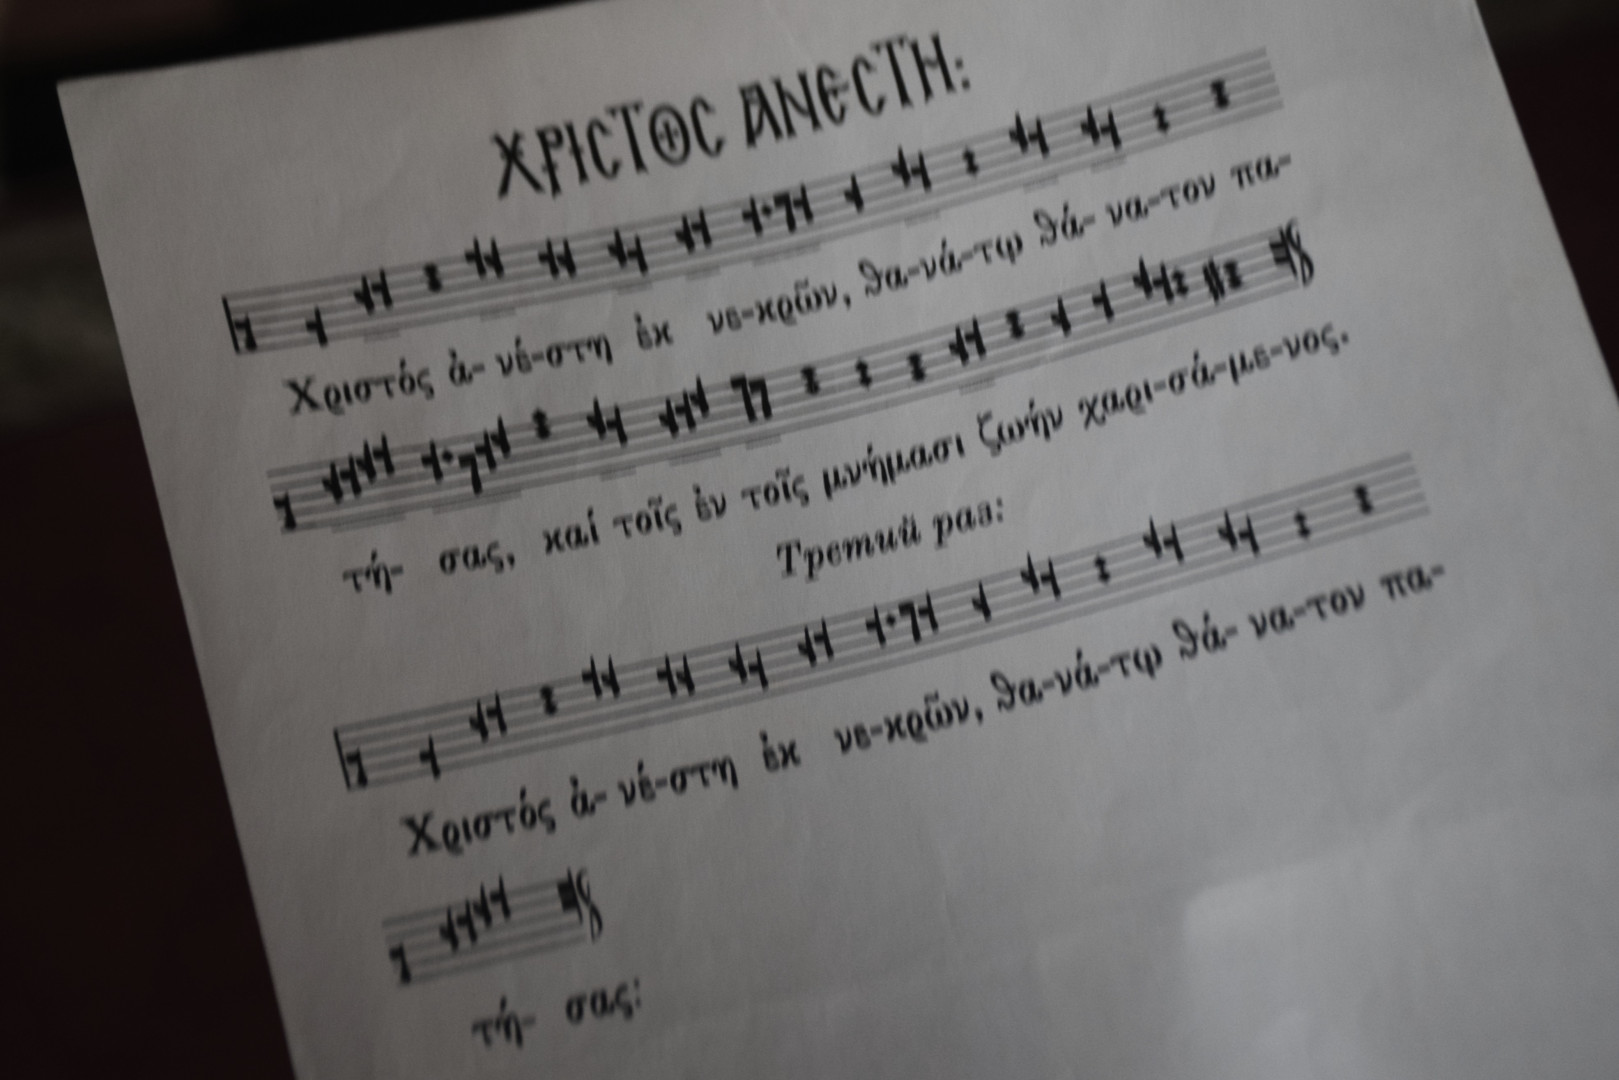 ΧΡΙСΤΟС ΑΝЄСΤΗ:
Χριστός ἀ- νέ-στη ἐκ νε-κρῶν, θα-νά-τῳ θά- να-τον πα-
τή- σας, καί τοῖς ἐν τοῖς μνήμασι ζωήν χαρι-σά-με-νος.
Третий раз:
Χριστός ἀ- νέ-στη ἐκ νε-κρῶν, θα-νά-τῳ θά- να-τον πα-
τή- σας: